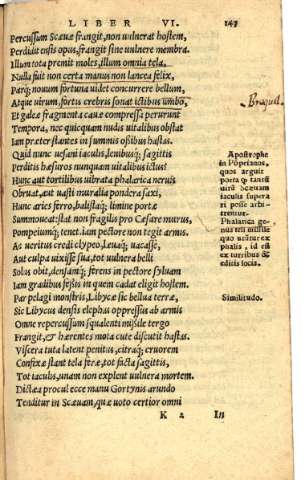 LIBER VI. 143
Percussum Scæuæ frangit, non uulnerat hostem,
Perdidit ensis opus, frangit sine uulnere membra.
Illum tota premit moles, illum omnia tela,
Nulla fuit non certa manus non lancea felix,
Parq; nouum fortuna uidet concurrere bellum,
Atque uirum, fortis crebris sonat ictibus umbo,
Et galeæ fragmenta cauæ compressa perurunt
Tempora, nec quicquam nudis uitalibus obstat
Iam præter stantes in summis ossibus hastas.
Quid nunc uesani iaculis, leuibusq; sagittis
Perditis hæsuros nunquam uitalibus ictus?
Hunc aut tortilibus uibrata phalarica neruis
Obruat, aut uasti muralia pondera saxi,
Hunc aries ferro, balistaq; limine portæ
Summoueat: stat non fragilis pro Cæsare murus,
Pompeiumq; tenet. iam pectora non tegit armis.
Ac ueritus credi clypeo, leuaq; uacasse,
Aut culpa uixisse sua, tot uulnera belli
Solus obit, densamq; ferens in pectore syluam
Iam gradibus fessis in quem cadat eligit hostem.
Par pelagi monstris, Libycæ sic bellua terræ,
Sic Libycus densis elephas oppressus ab armis
Omne repercussum squalenti missile tergo
Frangit, & hærentes mota cute discutit hastas.
Viscera tuta latent penitus, citraq; cruorem
Confixæ stant tela feræ, tot facta sagittis,
Tot iaculis, unam non explent uulnera mortem.
Dictæa procul ecce manu Gortynis arundo
Tenditur in Scæuam, quæ uoto certior omni
K 2 In
Apostrophe
in Pōpeianos,
quos arguit
porta q̄ tantū
uirū Scæuam
iaculis supera
ri posse arbi-
trentur.
Phalarica ge-
nus teli missile
quo utūtur ex
phalis, id est
ex turribus &
editis locis.
Similitudo.